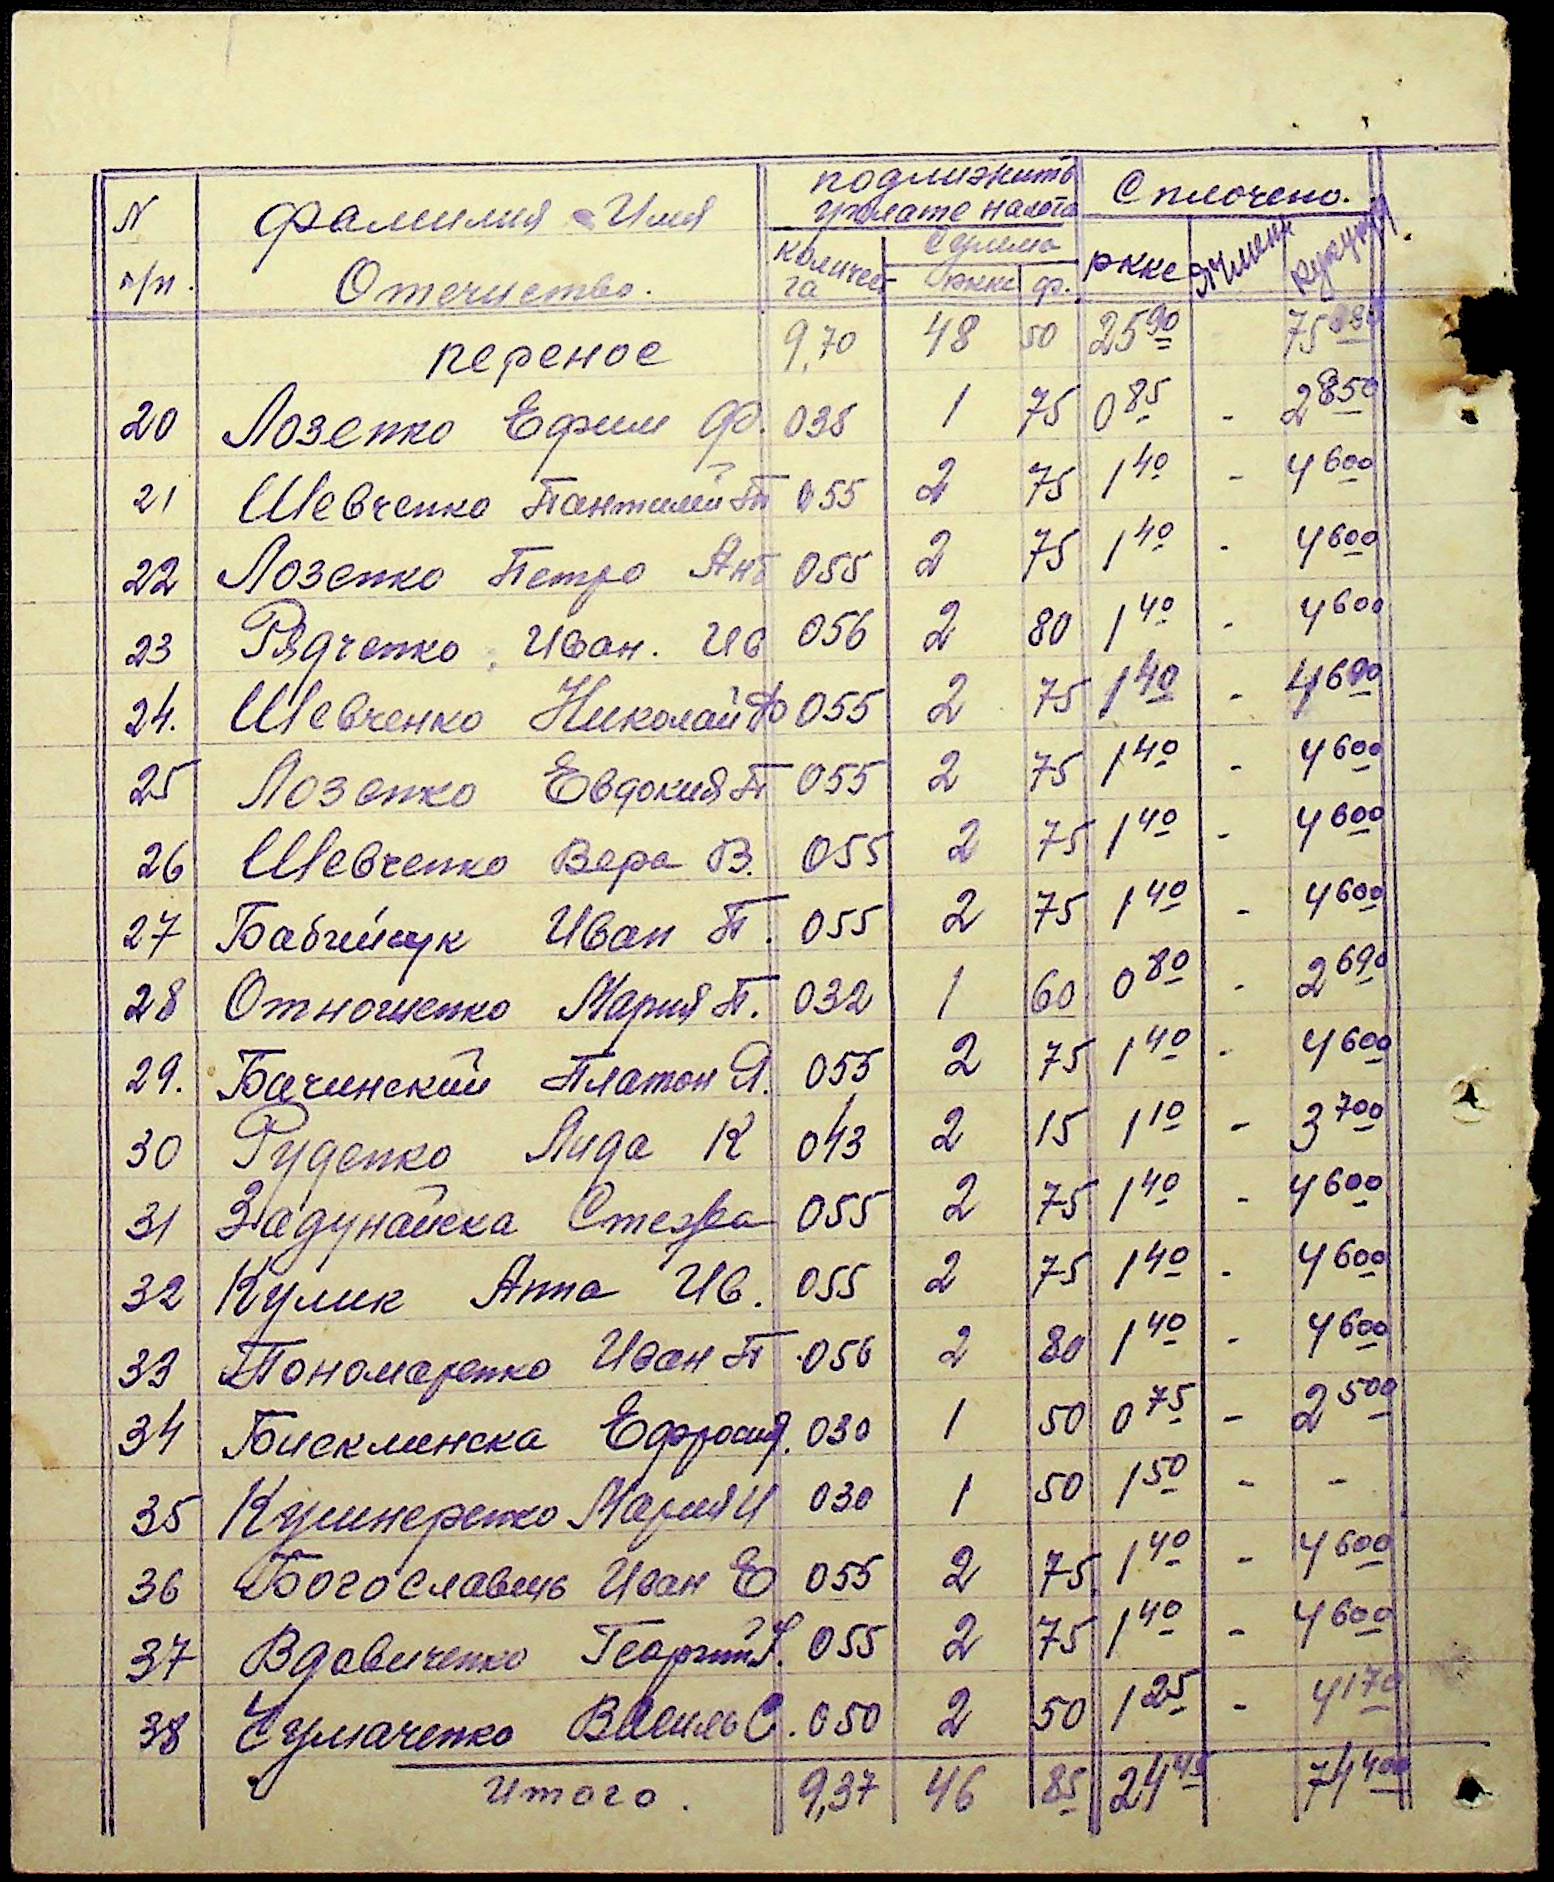 N п/п. Фамилия Имя Отечиство. подлижить уплате налога Сплочено.
количес га Сумма ркке ф. ркке ячмень кукуруз
перенос 9,70 48 50 25 90 75
20 Лозенко Ефим Ф. 035 1 75 0 85 - 2850
21 Шевченко Пантилей П 055 2 75 1 40 - 4600
22 Лозенко Петро Ант 055 2 75 1 40 - 4600
23 Рядченко Иван. Ив 056 2 80 1 40 - 4600
24. Шевченко Николай Фо 055 2 75 1 40 - 4600
25 Лозенко Евдокия П 055 2 75 1 40 - 4600
26 Шевченко Вера В. 055 2 75 1 40 - 4600
27 Бабийчук Иван П. 055 2 75 1 40 - 4600
28 Отношенко Мария П. 032 1 60 0 80 - 2690
29. Бачинский Платон Я. 055 2 75 1 40 - 4600
30 Руденко Лида К 043 2 15 1 10 - 3700
31 Задунайска Степка 055 2 75 1 40 - 4600
32 Кулик Анна Ив. 055 2 75 1 40 - 4600
33 Пономаренко Иван П 056 2 80 1 40 - 4600
34 Ефросия. 030 1 50 0 75 - 2500
35 Кушнеренко Мария И 030 1 50 1 50 - -
36 Богославець Иван Е 055 2 75 1 40 - 4600
37 Вдовиченко Георгий 055 2 75 1 40 - 4600
38 Чумаченко Василь С. 050 2 50 1 25 - 4170
Итого. 9,37 46 85 24 45 74400